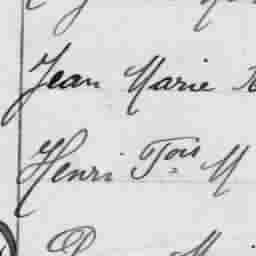 Jean Marie
Henri Fois M